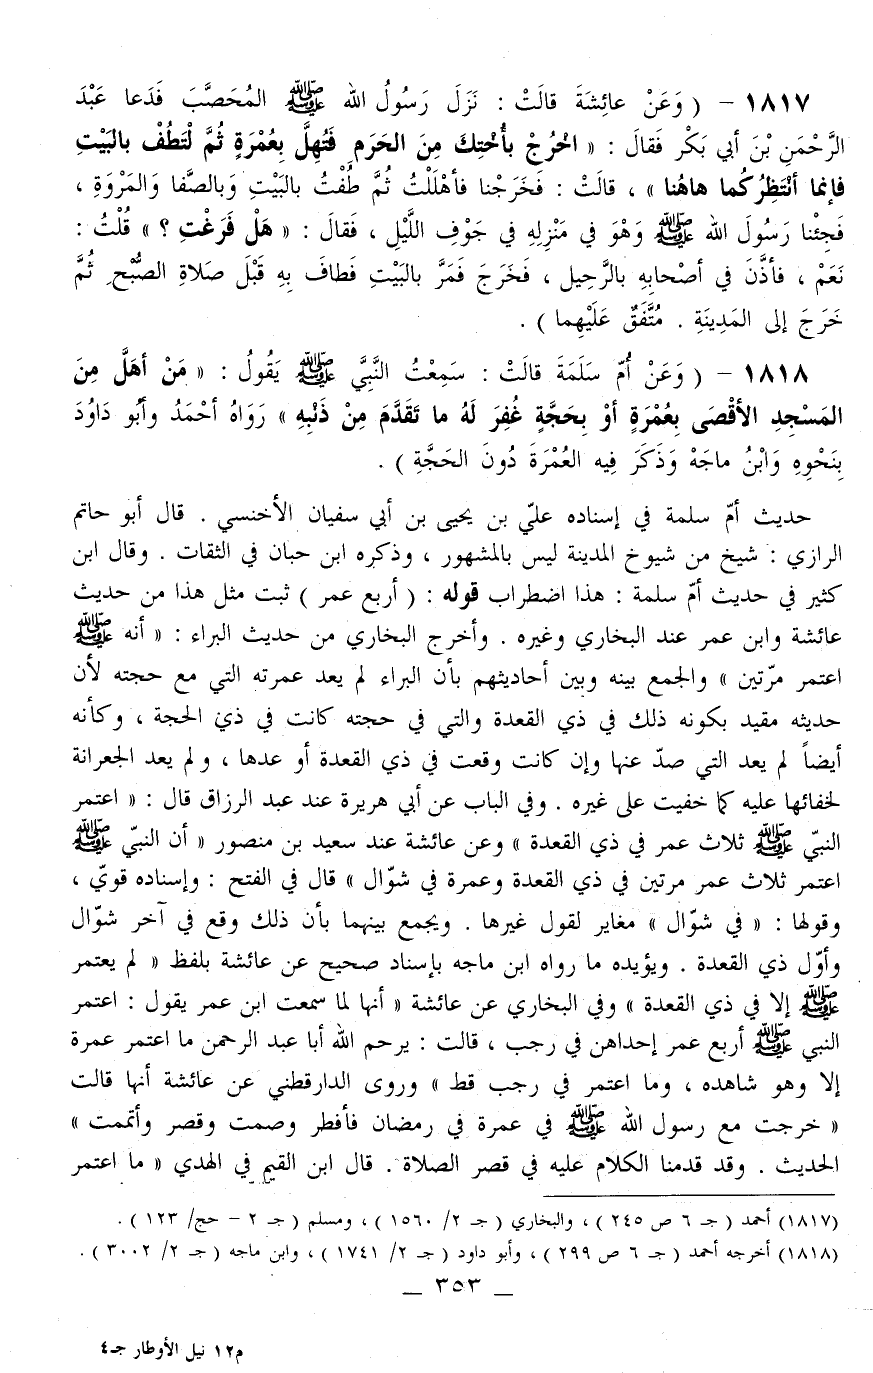 ١٨١٧ – ( وَعَنْ عائِشَةَ قالَتْ : نَزَلَ رَسُولُ الله ﷺ المُحَصَّبَ فَدَعا عَبْدَ
الرَّحْمَنِ بْنَ أبي بَكْرٍ فَقالَ : « اخْرُجْ بأُخْتِكَ مِنَ الحَرَمِ فَتُهِلَّ بِعُمْرَةٍ ثُمَّ لْتَطُفْ بالبَيْتِ
فإنما أنْتَظِرُكُما هاهُنا » ، قالَتْ : فَخَرَجْنا فأهْلَلْتُ ثُمَّ طُفْتُ بالبَيْتِ وَبالصَّفا وَالمَرْوَةِ ،
فَجِئْنا رَسُولَ الله ﷺ وَهْوَ في مَنْزِلِهِ في جَوْفِ اللَّيْلِ ، فَقالَ : « هَلْ فَرَغْتِ ؟ » قُلْتُ :
نَعَمْ ، فأذَّنَ في أصْحابِهِ بالرَّحِيلِ ، فَخَرَجَ فَمَرَّ بالبَيْتِ فَطافَ بِهِ قَبْلَ صَلاةِ الصُّبْحِ ثُمَّ
خَرَجَ إلى المَدِينَةِ . مُتَّفَقٌ عَلَيْهِما ) .
١٨١٨ – ( وَعَنْ أُمّ سَلَمَةَ قالَتْ : سَمِعْتُ النَّبِيَّ ﷺ يَقُولُ : « مَنْ أهَلَّ مِنَ
المَسْجِدِ الأقْصَى بِعُمْرَةٍ أوْ بِحَجَّةٍ غُفِرَ لَهُ ما تَقَدَّمَ مِنْ ذَنْبِهِ » رَوَاهُ أحْمَدُ وأبُو دَاوُدَ
بِنَحْوِهِ وَابْنُ ماجَهْ وَذَكَرَ فِيهِ العُمْرَةَ دُونَ الحَجَّةِ ) .
حديث أمّ سلمة في إسناده عليّ بن يحيى بن أبي سفيان الأخنسي . قال أبو حاتم
الرازي : شيخ من شيوخ المدينة ليس بالمشهور ، وذكره ابن حبان في الثقات . وقال ابن
كثير في حديث أمّ سلمة : هذا اضطراب قوله : ( أربع عمر ) ثبت مثل هذا من حديث
عائشة وابن عمر عند البخاري وغيره . وأخرج البخاري من حديث البراء : « أنه ﷺ
اعتمر مرّتين » والجمع بينه وبين أحاديثهم بأن البراء لم يعد عمرته التي مع حجته لأن
حديثه مقيد بكونه ذلك في ذي القعدة والتي في حجته كانت في ذي الحجة ، وكأنه
أيضاً لم يعد التي صدّ عنها وإن كانت وقعت في ذي القعدة أو عدها ، ولم يعد الجعرانة
لخفائها عليه كما خفيت على غيره . وفي الباب عن أبي هريرة عند عبد الرزاق قال : « اعتمر
النبيّ ﷺ ثلاث عمر في ذي القعدة » وعن عائشة عند سعيد بن منصور « أن النبيّ ﷺ
اعتمر ثلاث عمر مرتين في ذي القعدة وعمرة في شوّال » قال في الفتح : وإسناده قويّ ،
وقولها : « في شوّال » مغاير لقول غيرها . ويجمع بينهما بأن ذلك وقع في آخر شوّال
وأوّل ذي القعدة . ويؤيده ما رواه ابن ماجه بإسناد صحيح عن عائشة بلفظ « لم يعتمر
ﷺ إلا في ذي القعدة » وفي البخاري عن عائشة « أنها لما سمعت ابن عمر يقول : اعتمر
النبي ﷺ أربع عمر إحداهن في رجب ، قالت : يرحم الله أبا عبد الرحمن ما اعتمر عمرة
إلا وهو شاهده ، وما اعتمر في رجب قط » وروى الدارقطني عن عائشة أنها قالت
« خرجت مع رسول الله ﷺ في عمرة في رمضان فأفطر وصمت وقصر وأتممت »
الحديث . وقد قدمنا الكلام عليه في قصر الصلاة . قال ابن القيم في الهدي « ما اعتمر
(١٨١٧) أحمد ( جـ ٦ ص ٢٤٥ ) ، والبخاري ( جـ ٢/ ١٥٦٠ ) ، ومسلم ( جـ ٢ – حج/ ١٢٣ ) .
(١٨١٨) أخرجه أحمد ( جـ ٦ ص ٢٩٩ ) ، وأبو داود ( جـ ٢/ ١٧٤١ ) ، وابن ماجه ( جـ ٢/ ٣٠٠٢ ) .
— ٣٥٣ —
م١٢ نيل الأوطار جـ٤